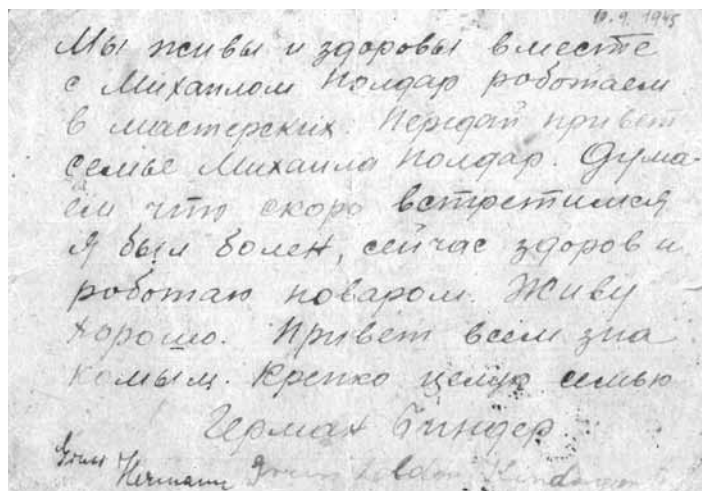 10.9.1945
Мы живы и здоровы вместе
с Михаилом Полдар роботаем
в мастерских. Передай привет
семье Михаила Полдар. Дума-
ем что скоро встретимся
Я был болен, сейчас здоров и
роботаю поваром. Живу
хорошо. Привет всем зна
комым. Крепко целую семью
Герман Биндер
Hermann